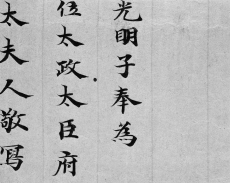 光明子奉為
位太政太臣府
太夫人敬寫